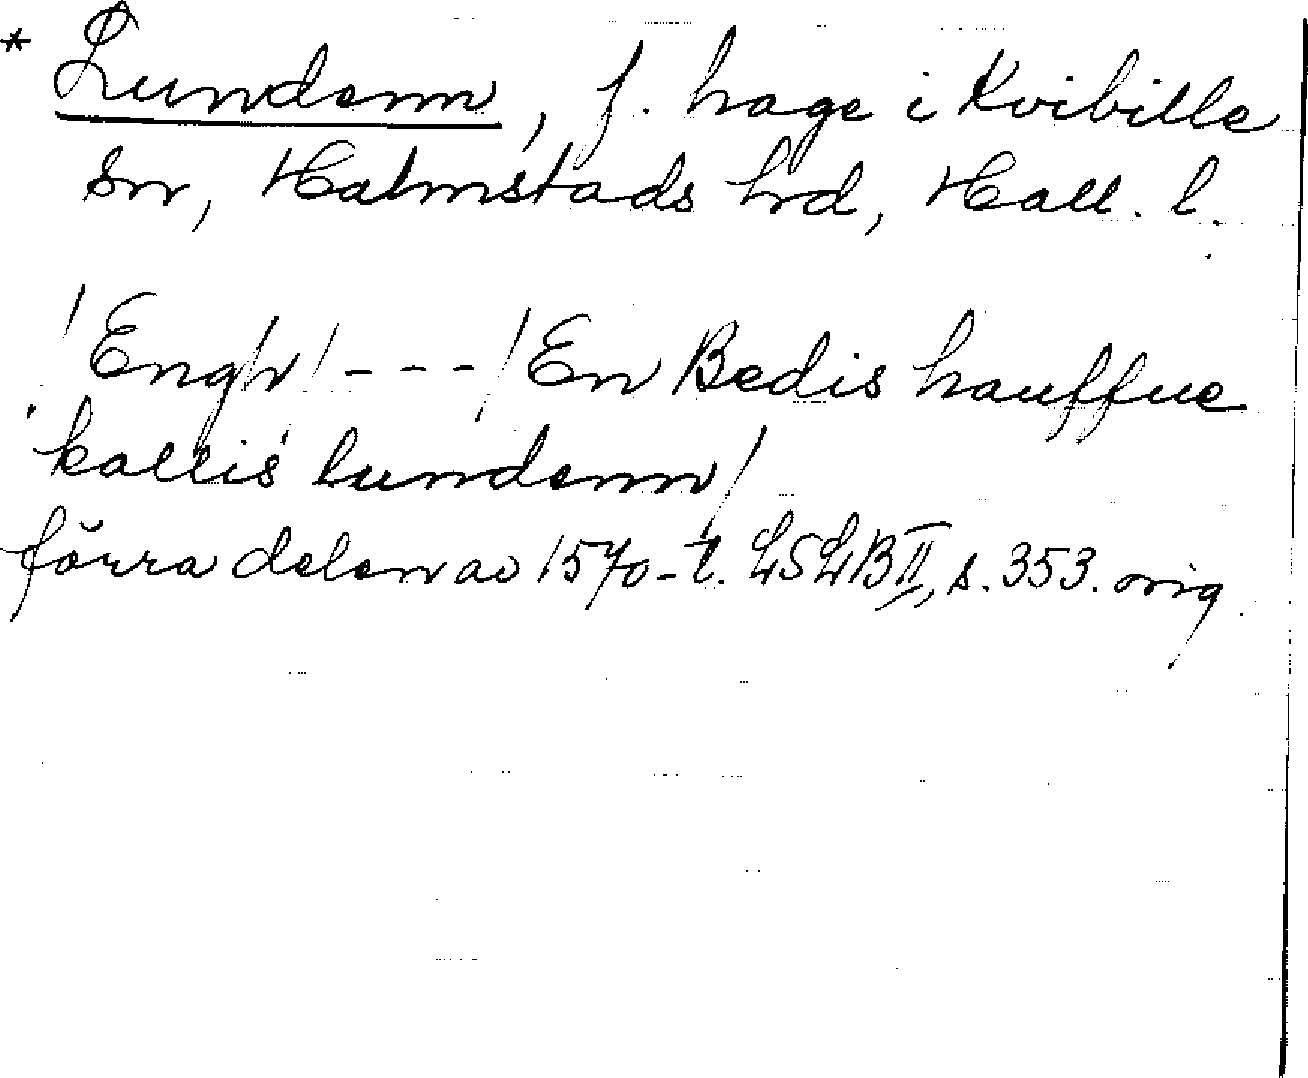 * Lundenn, f. hage i Kvibille
sn, Halmstads hrd, Hall. l.
/Engh/ - - - /En Bedis hauffue
kallis lundenn/
förra delen av 1570-t. LSLB II, s. 353. orig